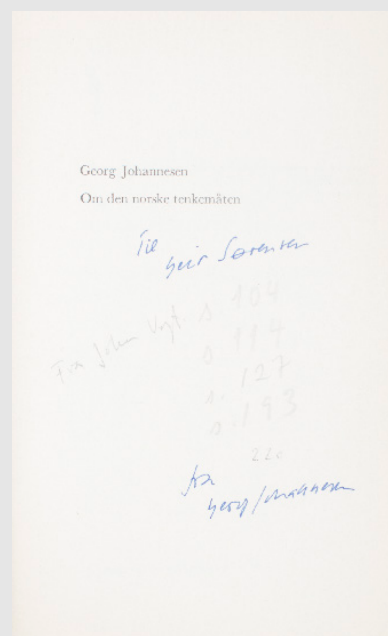 Georg Johannesen
Om den norske tenkemåten
Til
Geir Sørensen
Fra Johan Vogt. s 164
s 114
s. 127
s. 193
220
fra
Georg Johannesen